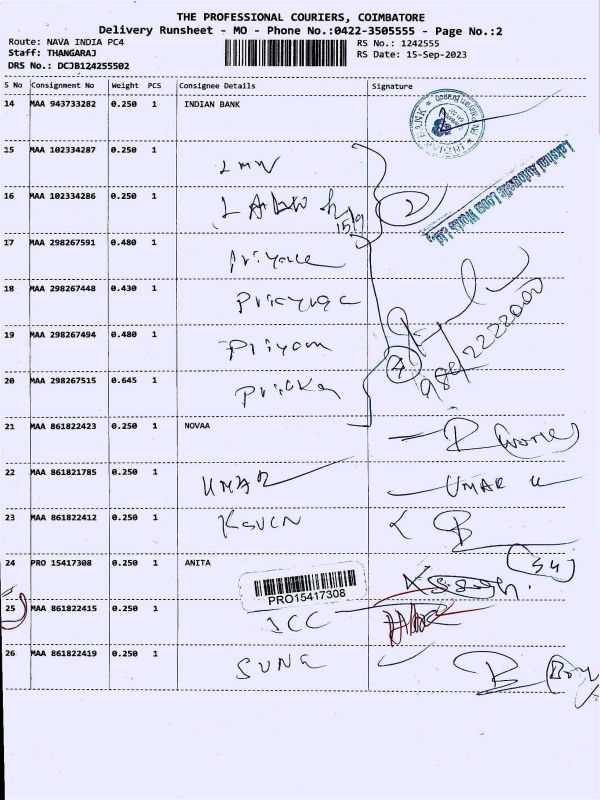 THE PROFESSIONAL COURIERS, COIMBATORE
Delivery Runsheet - MO - Phone No.:0422-3505555 - Page No.:2
Route: NAVA INDIA PC4
RS No.: 1242555
Staff: THANGARAJ
RS Date: 15-Sep-2023
DRS No.: DCJB124255502
S No Consignment No Weight PCS Consignee Details Signature
14 MAA 943733282 0.250 1 INDIAN BANK
15 MAA 102334287 0.250 1 LMW
16 MAA 102334286 0.250 1
2
15/9
Lakshmi Automatic Loom Works Ltd.
17 MAA 298267591 0.480 1
18 MAA 298267448 0.430 1
19 MAA 298267494 0.480 1 Priyam
4
989/2222000
20 MAA 298267515 0.645 1
21 MAA 861822423 0.250 1 NOVAA
22 MAA 861821785 0.250 1 UMAR UMAR K
23 MAA 861822412 0.250 1
24 PRO 15417308 0.250 1 ANITA
PRO15417308
25 MAA 861822415 0.250 1 ICC
26 MAA 861822419 0.250 1